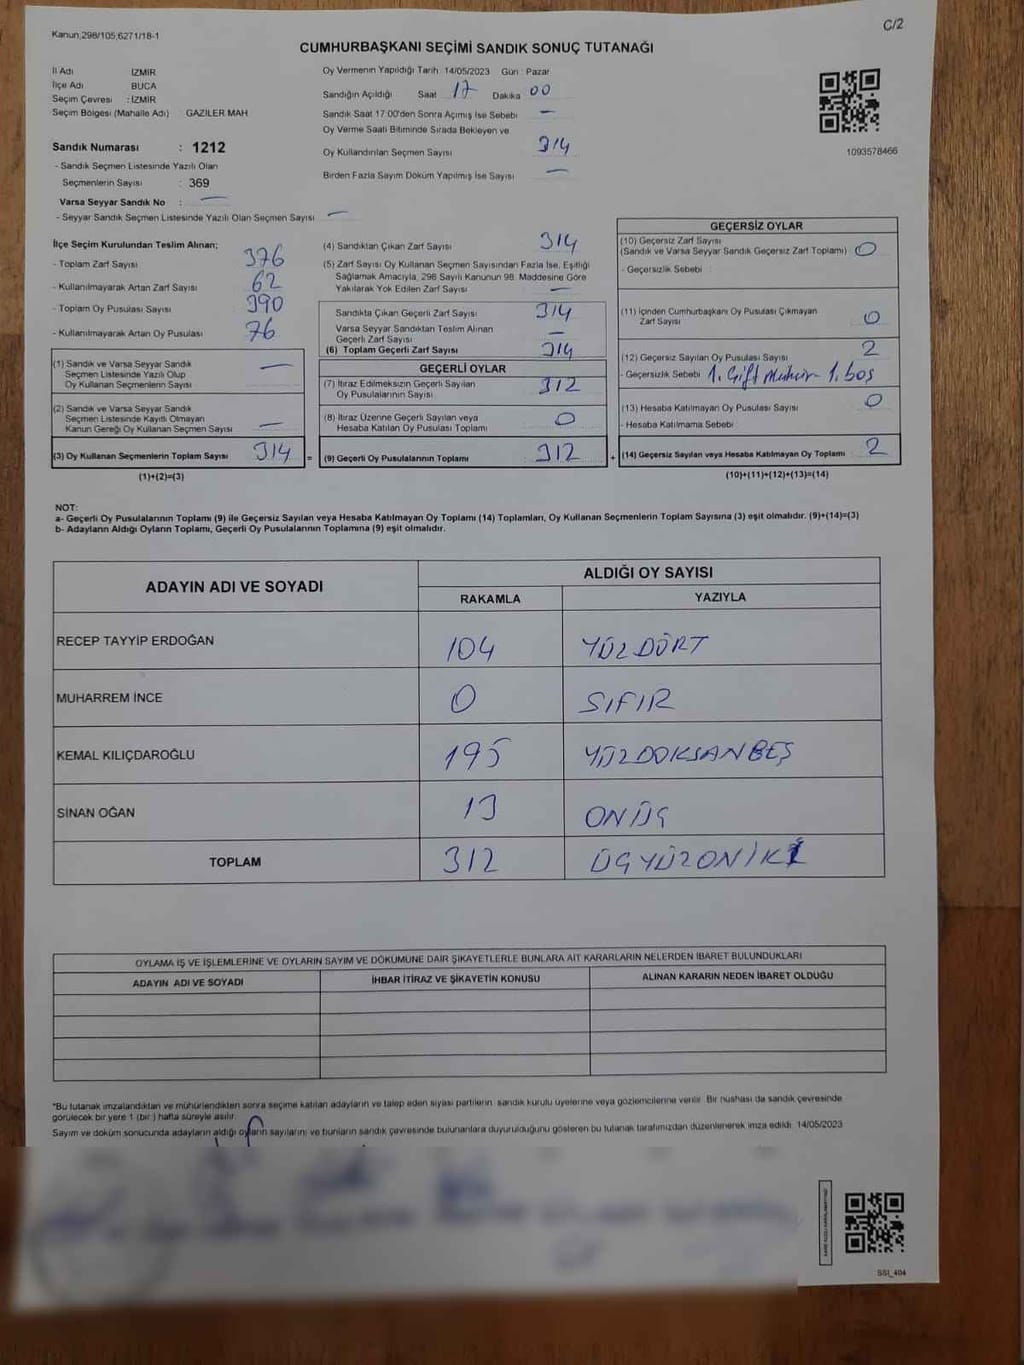 Kanun,298/105,6271/18-1
C/2
CUMHURBAŞKANI SEÇİMİ SANDIK SONUÇ TUTANAĞI
İl Adı İZMİR
İlçe Adı BUCA
Seçim Çevresi : İZMİR
Seçim Bölgesi (Mahalle Adı) GAZİLER MAH
Sandık Numarası : 1212
- Sandık Seçmen Listesinde Yazılı Olan
Seçmenlerin Sayısı : 369
Varsa Seyyar Sandık No : —
- Seyyar Sandık Seçmen Listesinde Yazılı Olan Seçmen Sayısı : —
Oy Vermenin Yapıldığı Tarih : 14/05/2023 Gün : Pazar
Sandığın Açıldığı Saat 17 Dakika 00
Sandık Saat 17:00'den Sonra Açılmış İse Sebebi : —
Oy Verme Saati Bitiminde Sırada Bekleyen ve
Oy Kullandırılan Seçmen Sayısı 314
Birden Fazla Sayım Döküm Yapılmış İse Sayısı —
1093578466
İlçe Seçim Kurulundan Teslim Alınan;
- Toplam Zarf Sayısı : 376
- Kullanılmayarak Artan Zarf Sayısı : 62
- Toplam Oy Pusulası Sayısı : 390
- Kullanılmayarak Artan Oy Pusulası : 76
(1) Sandık ve Varsa Seyyar Sandık
Seçmen Listesinde Yazılı Olup
Oy Kullanan Seçmenlerin Sayısı : —
(2) Sandık ve Varsa Seyyar Sandık
Seçmen Listesinde Kayıtlı Olmayan
Kanun Gereği Oy Kullanan Seçmen Sayısı : —
(3) Oy Kullanan Seçmenlerin Toplam Sayısı : 314
(1)+(2)=(3)
=
(4) Sandıktan Çıkan Zarf Sayısı : 314
(5) Zarf Sayısı Oy Kullanan Seçmen Sayısından Fazla İse, Eşitliği
Sağlamak Amacıyla, 298 Sayılı Kanunun 98. Maddesine Göre
Yakılarak Yok Edilen Zarf Sayısı : —
Sandıkta Çıkan Geçerli Zarf Sayısı : 314
Varsa Seyyar Sandıktan Teslim Alınan
Geçerli Zarf Sayısı : —
(6) Toplam Geçerli Zarf Sayısı : 314
GEÇERLİ OYLAR
(7) İtiraz Edilmeksizin Geçerli Sayılan
Oy Pusulalarının Sayısı : 312
(8) İtiraz Üzerine Geçerli Sayılan veya
Hesaba Katılan Oy Pusulası Toplamı : 0
(9) Geçerli Oy Pusulalarının Toplamı : 312
+
GEÇERSİZ OYLAR
(10) Geçersiz Zarf Sayısı
(Sandık ve Varsa Seyyar Sandık Geçersiz Zarf Toplamı) : 0
- Geçersizlik Sebebi :
(11) İçinden Cumhurbaşkanı Oy Pusulası Çıkmayan
Zarf Sayısı : 0
(12) Geçersiz Sayılan Oy Pusulası Sayısı : 2
- Geçersizlik Sebebi : 1. Çift Mühür 1. boş
(13) Hesaba Katılmayan Oy Pusulası Sayısı : 0
- Hesaba Katılmama Sebebi :
(14) Geçersiz Sayılan veya Hesaba Katılmayan Oy Toplamı : 2
(10)+(11)+(12)+(13)=(14)
NOT:
a- Geçerli Oy Pusulalarının Toplamı (9) ile Geçersiz Sayılan veya Hesaba Katılmayan Oy Toplamı (14) Toplamları, Oy Kullanan Seçmenlerin Toplam Sayısına (3) eşit olmalıdır. (9)+(14)=(3)
b- Adayların Aldığı Oyların Toplamı, Geçerli Oy Pusulalarının Toplamına (9) eşit olmalıdır.
ADAYIN ADI VE SOYADI
ALDIĞI OY SAYISI
RAKAMLA YAZIYLA
RECEP TAYYİP ERDOĞAN 104 YÜZDÖRT
MUHARREM İNCE 0 SIFIR
KEMAL KILIÇDAROĞLU 195 YÜZDOKSANBEŞ
SİNAN OĞAN 13 ONÜÇ
TOPLAM 312 ÜÇYÜZONİKİ
OYLAMA İŞ VE İŞLEMLERİNE VE OYLARIN SAYIM VE DÖKÜMÜNE DAİR ŞİKAYETLERLE BUNLARA AİT KARARLARIN NELERDEN İBARET BULUNDUKLARI
ADAYIN ADI VE SOYADI İHBAR İTİRAZ VE ŞİKAYETİN KONUSU ALINAN KARARIN NEDEN İBARET OLDUĞU
*Bu tutanak imzalandıktan ve mühürlendikten sonra seçime katılan adayların ve talep eden siyasi partilerin sandık kurulu üyelerine veya gözlemcilerine verilir. Bir nüshası da sandık çevresinde
görülecek bir yere 1 (bir ) hafta süreyle asılır.
Sayım ve döküm sonucunda adayların aldığı oyların sayılarını ve bunların sandık çevresinde bulunanlara duyurulduğunu gösteren bu tutanak tarafımızdan düzenlenerek imza edildi. 14/05/2023
SSI_404